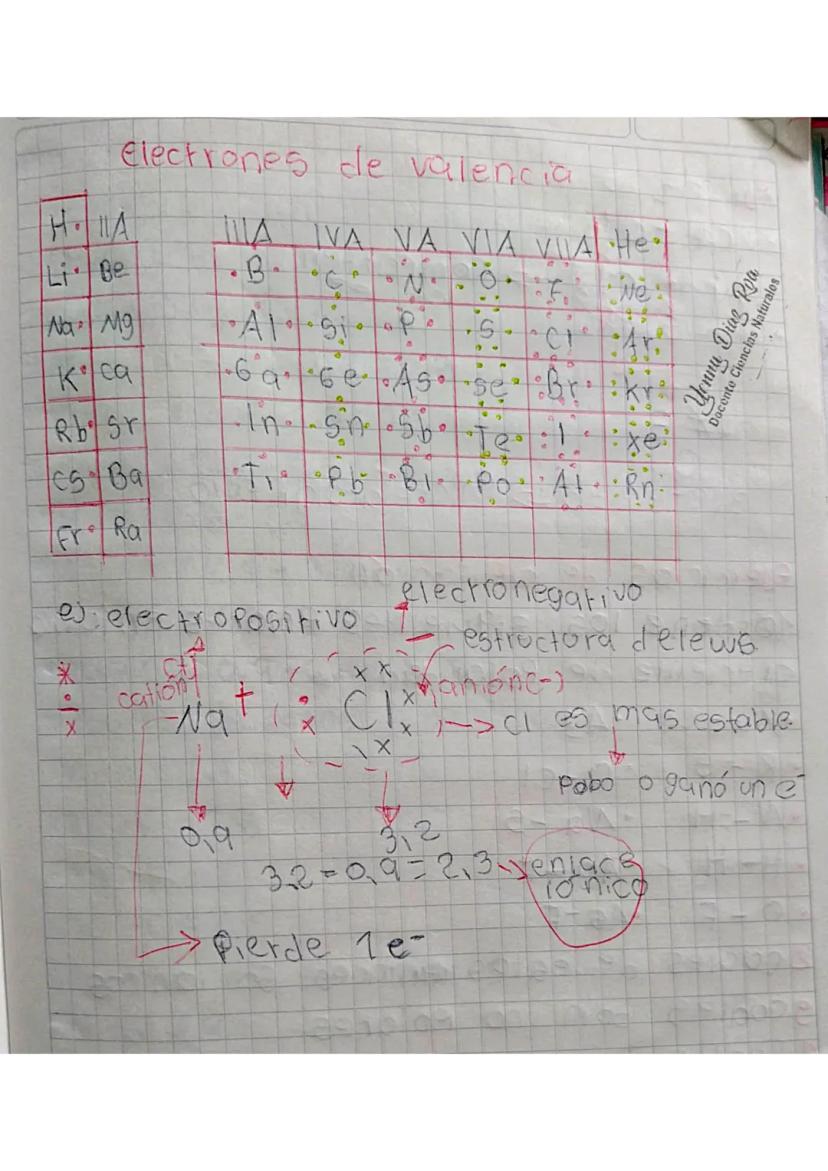 electrones de valencia
H· IIA IIIA IVA VA VIA VIIA He
Li· Be B C N O F Ne
Na· Mg Al Si P S Cl Ar
K· ca Ga Ge As Se Br Kr
Rb· Sr In Sn Sb Te I xe
cs· Ba Ti Pb Bi Po At Rn
Fr· Ra
Yenny Diaz Roa
Docente Ciencias Naturales
electronegativo
ej: electropositivo
estructora delews
c(+)
catión
anión(-)
Na + Cl → cl es mas estable
robo o ganó un e-
0,9 3,2
3,2 = 0,9 = 2,3 → enlace
iónico
Pierde 1e-